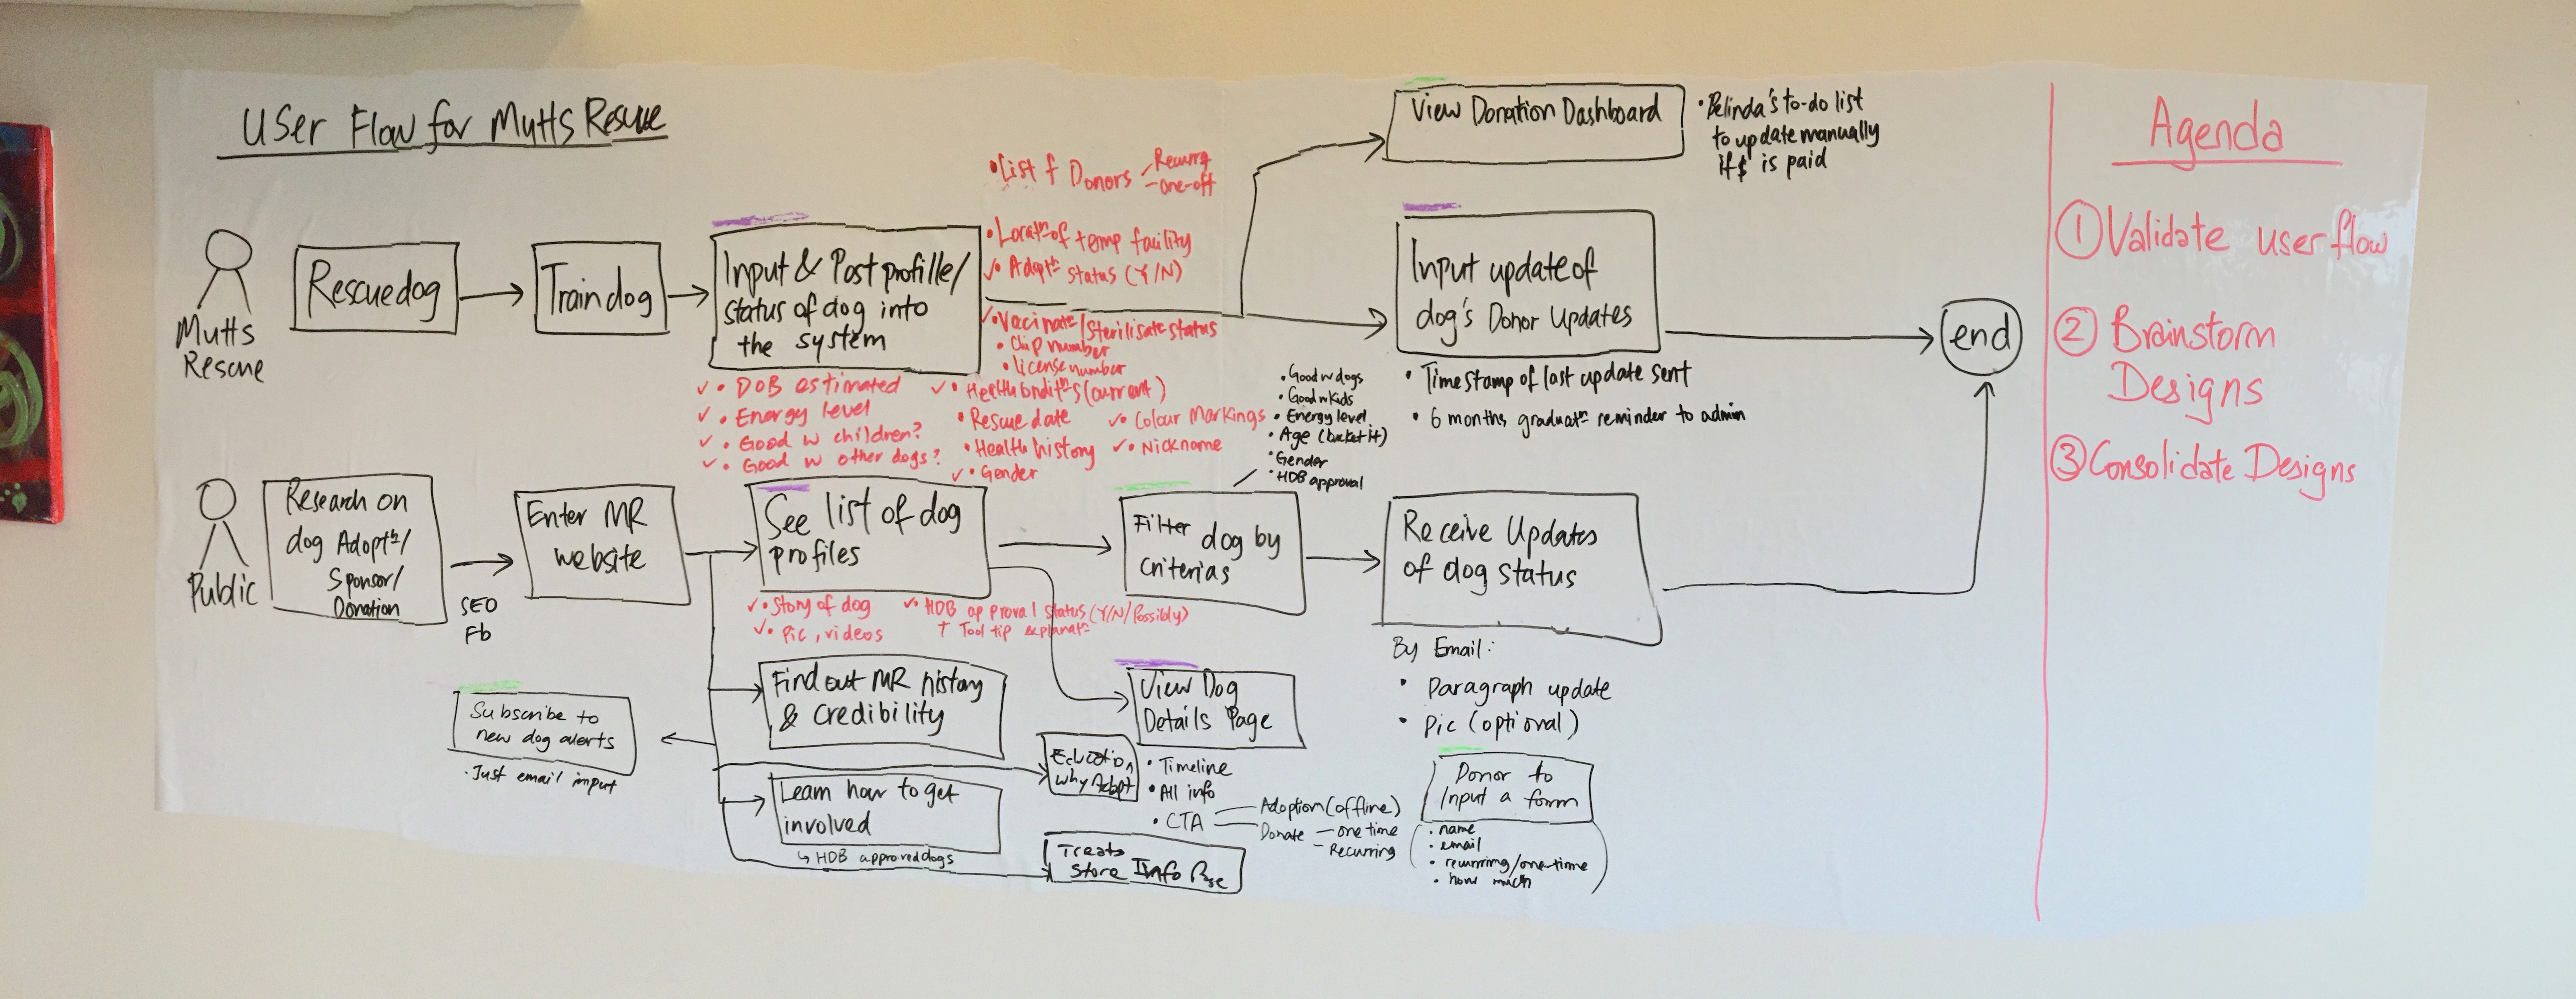 User Flow for Mutts Rescue
Mutts
Rescue
Rescue dog
Train dog
Input & Post profille/
status of dog into
the system
• List f Donors
Recurrg
one-off
• Locatⁿ of temp facility
✓• Adoptⁿ status (Y/N)
✓• Vaccinatⁿ/Sterilisatⁿ status
• Chip number
• License number
✓• DOB estimated
✓• Energy level
✓• Good w children?
✓• Good w other dogs?
✓• Health conditⁿs (current)
• Rescue date
• Health history
✓• Gender
✓• Colour Markings
✓• Nickname
View Donation Dashboard
• Belinda's to-do list
to update manually
if $ is paid
Input update of
dog's Donor Updates
• Timestamp of last update sent
• 6 months graduatⁿ reminder to admin
end
Public
Research on
dog Adoptⁿ/
Sponsor/
Donation
SEO
Fb
Enter MR
website
See list of dog
profiles
✓• Story of dog
✓• Pic, videos
✓• HDB approval status (Y/N/Possibly)
↑ Tool tip explanatⁿ
• Good w dogs
• Good w kids
• Energy level
• Age (bucket it)
• Gender
• HDB approval
Filter dog by
criterias
Receive Updates
of dog status
By Email:
• Paragraph update
• Pic (optional)
Subscribe to
new dog alerts
• Just email input
Find out MR history
& Credibility
Learn how to get
involved
↳ HDB approved dogs
Education
Why Adopt
Treats
Store Info Page
View Dog
Details Page
• Timeline
• All info
• CTA
Adoption (offline)
Donate — one time
— Recurring
Donor to
Input a form
• name
• email
• recurring/one-time
• how much
Agenda
① Validate user flow
② Brainstorm
Designs
③ Consolidate Designs